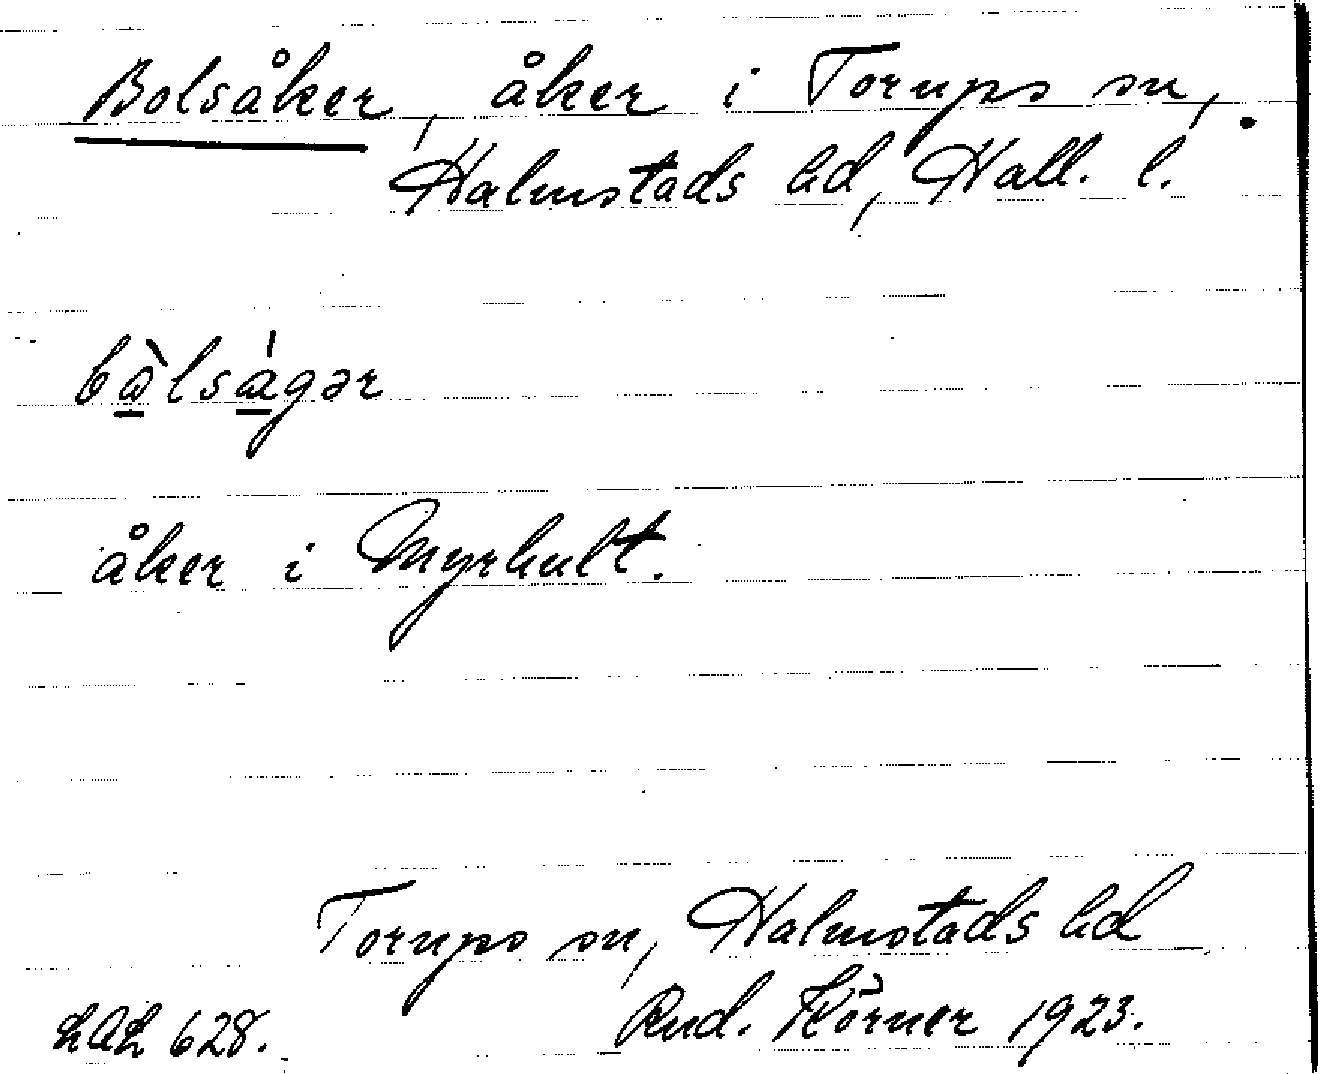 Bolsåker, åker i Torups sn,
Halmstads hd, Hall. l.
bàlságər
åker i Myrhult.
Torups sn, Halmstads hd
LAL 628. Rud. Körner 1923.